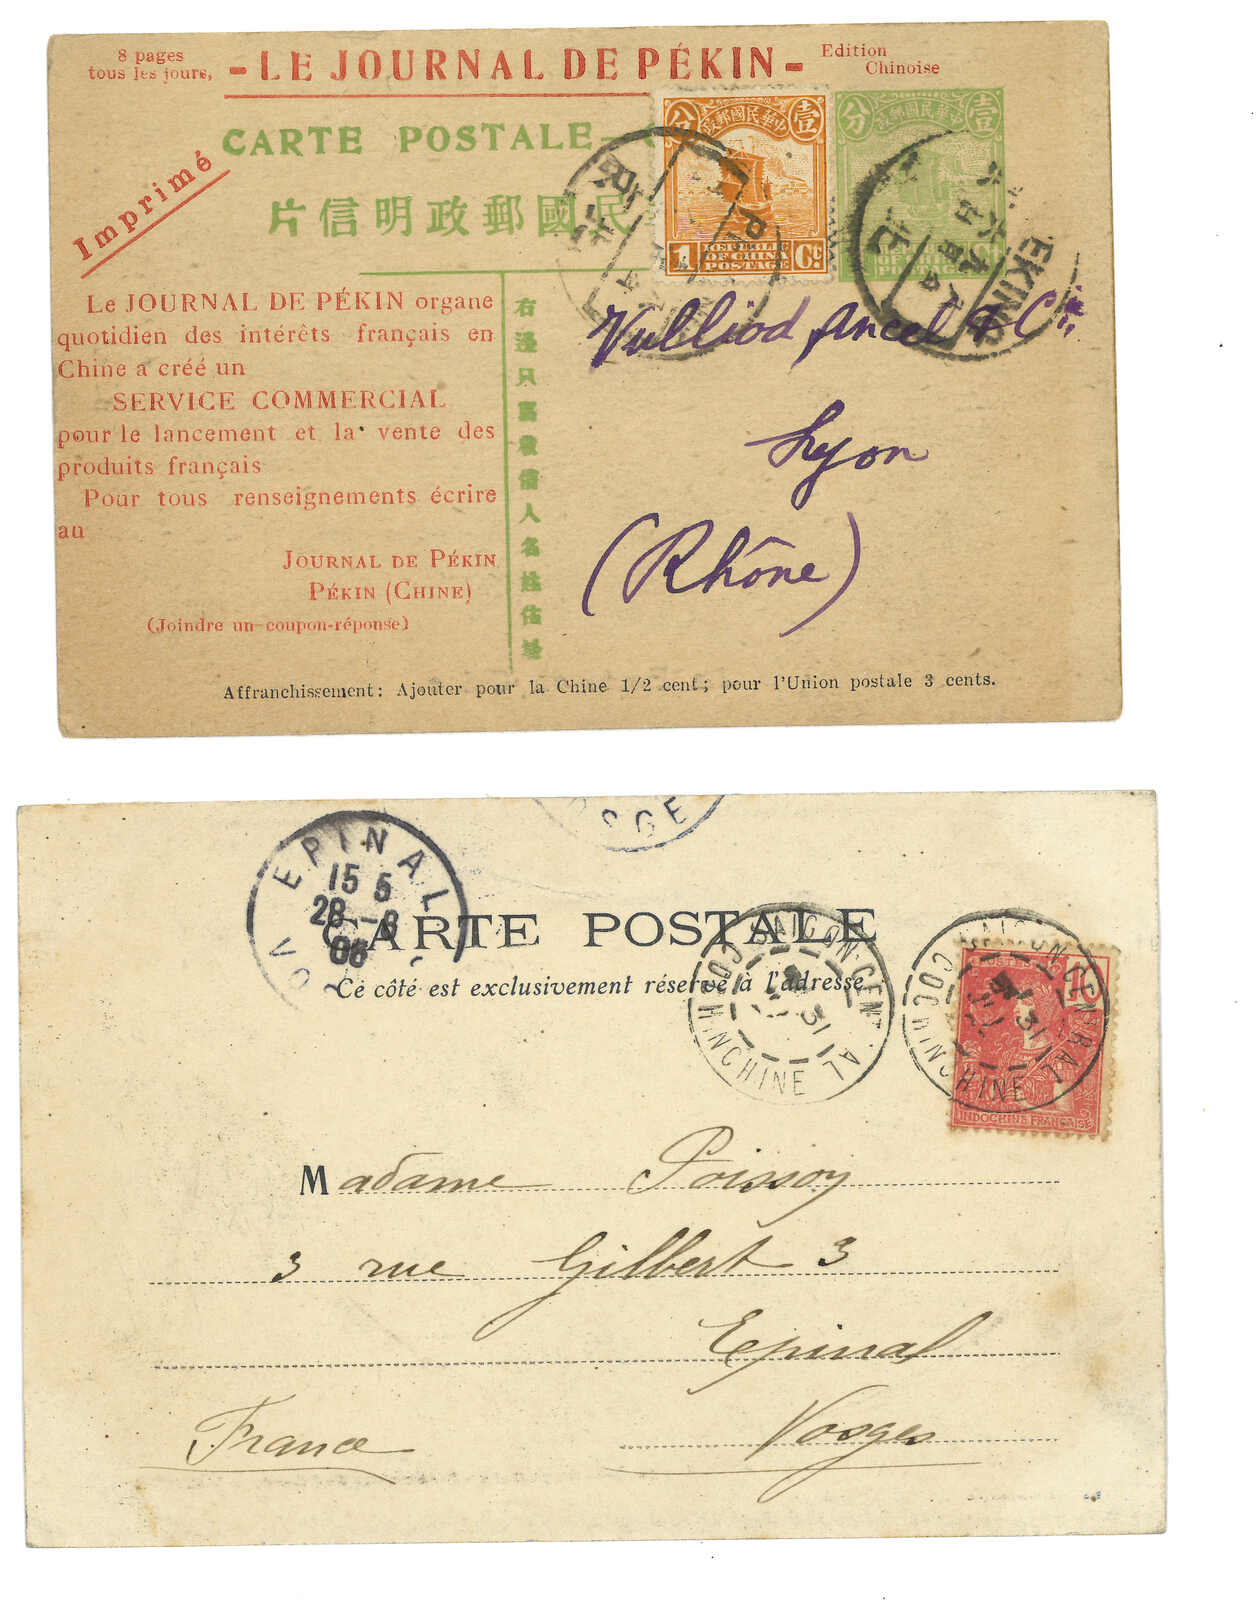 8 pages
tous les jours,
- LE JOURNAL DE PÉKIN -
Edition
Chinoise
Imprimé
CARTE POSTALE
片信明政郵國民
中華民國郵政
壹
分
1
REPUBLIC
OF CHINA
POSTAGE
Ct
中華民國郵政
壹
分
OF CHINA
POSTAGE
EKING
Le JOURNAL DE PÉKIN organe
quotidien des intérêts français en
Chine a créé un
SERVICE COMMERCIAL
pour le lancement et la vente des
produits français
Pour tous renseignements écrire
au
JOURNAL DE PÉKIN
PÉKIN (CHINE)
(Joindre un coupon-réponse)
右邊只寫收信人名姓住址
Vulliod Ancel & Cie
Lyon
(Rhône)
Affranchissement: Ajouter pour la Chine 1/2 cent; pour l'Union postale 3 cents.
EPINAL
15 5
28 -8
06
CARTE POSTALE
Ce côté est exclusivement réservé à l'adresse
SAIGON-CENTRAL
COCHINCHINE
31
SAIGON-CENTRAL
COCHINCHINE
31
POSTES
15
INDOCHINE FRANÇAISE
Madame Poissoy
3 rue Gilbert 3
Epinal
France
Vosges